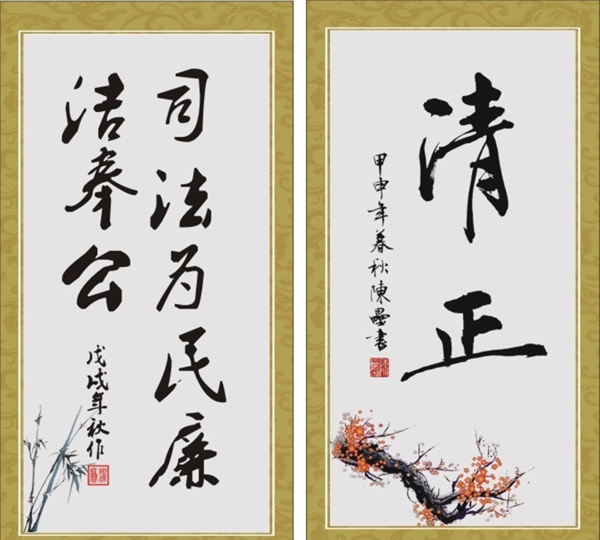 司法为民廉
洁奉公
戊戌年秋作
清正
甲申年秋陳墨書